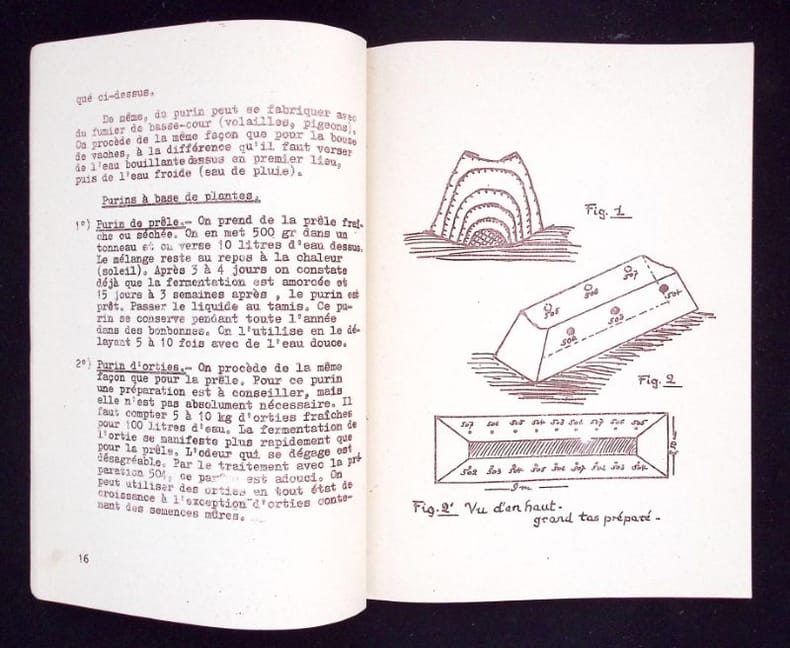 qué ci-dessus.
De même, du purin peut se fabriquer avec
du fumier de basse-cour (volailles, pigeons).
On procède de la même façon que pour la bouse
de vaches, à la différence qu'il faut verser
de l'eau bouillante dessus en premier lieu,
puis de l'eau froide (eau de pluie).
Purins à base de plantes.
1°) Purin de prêle.- On prend de la prêle fraî-
che ou séchée. On en met 500 gr dans un
tonneau et on verse 10 litres d'eau dessus.
Le mélange reste au repos à la chaleur
(soleil). Après 3 à 4 jours on constate
déjà que la fermentation est amorcée et
15 jours à 3 semaines après , le purin est
prêt. Passer le liquide au tamis. Ce pu-
rin se conserve pendant toute l'année
dans des bonbonnes. On l'utilise en le dé-
layant 5 à 10 fois avec de l'eau douce.
2°) Purin d'orties.- On procède de la même
façon que pour la prêle. Pour ce purin
une préparation est à conseiller, mais
elle n'est pas absolument nécessaire. Il
faut compter 5 à 10 kg d'orties fraîches
pour 100 litres d'eau. La fermentation de
l'ortie se manifeste plus rapidement que
pour la prêle. L'odeur qui se dégage est
désagréable. Par le traitement avec la pré-
paration 504, ce est adouci. On
peut utiliser des orties en tout état de
croissance à l'exception d'orties conte-
nant des semences mûres.
16
Fig. 1
505 506 507
502 503 504
Fig. 2
507 506 505 504 503 502 507 506 505
502 503 504 505 506 507 502 503 504
9m
Fig. 2' Vu d'en haut.
grand tas préparé.